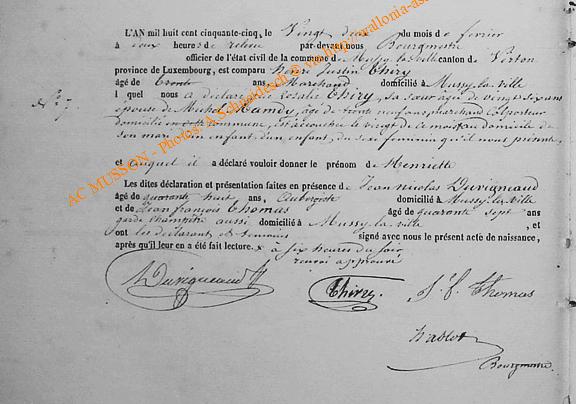 L'AN mil huit cent cinquante-cinq, le Vingt deux du mois de fevrier
à deux heures de relevée par-devant nous Bourgmestre
officier de l'état civil de la commune de Mussy-la-ville canton de Virton
province de Luxembourg, est comparu henri Justin Thiry
âgé de trente ans Marchand domicilié à Mussy-la-Ville
lequel nous a déclaré que Rosalie Thiry, sa sœur âgée de vingt six ans
épouse de Michel Hamdy, âgé de trente neuf ans, marchand colporteur
domicilié en cette commune, est accouchée le vingt de ce mois au domicile de
son mari d'un enfant du sexe feminin qu'il nous présente,
et auquel il a déclaré vouloir donner le prénom de Henriette
Les dites déclaration et présentation faites en présence de Jean Nicolas Duvigneaud
âgé de quarante huit ans, Aubergiste domicilié à Mussy-la-Ville
et de Jean françois Thomas âgé de quarante sept ans
garde champêtre aussi domicilié à Mussy-la-ville, et
ont les déclarant et témoins signé avec nous le présent acte de naissance,
après qu'il leur en a été fait lecture. à six heures du soir
renvoi approuvé
N° 7
Duvigneaud Thiry. J. f. Thomas
Bourgmestre.
AC MUSSON - Photos: A Schmideseh @ Via http://wallonia-as